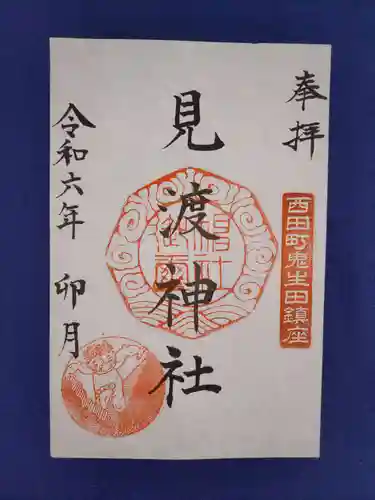 奉拝
西田町鬼生田鎮座
見渡神社
令和六年 卯月